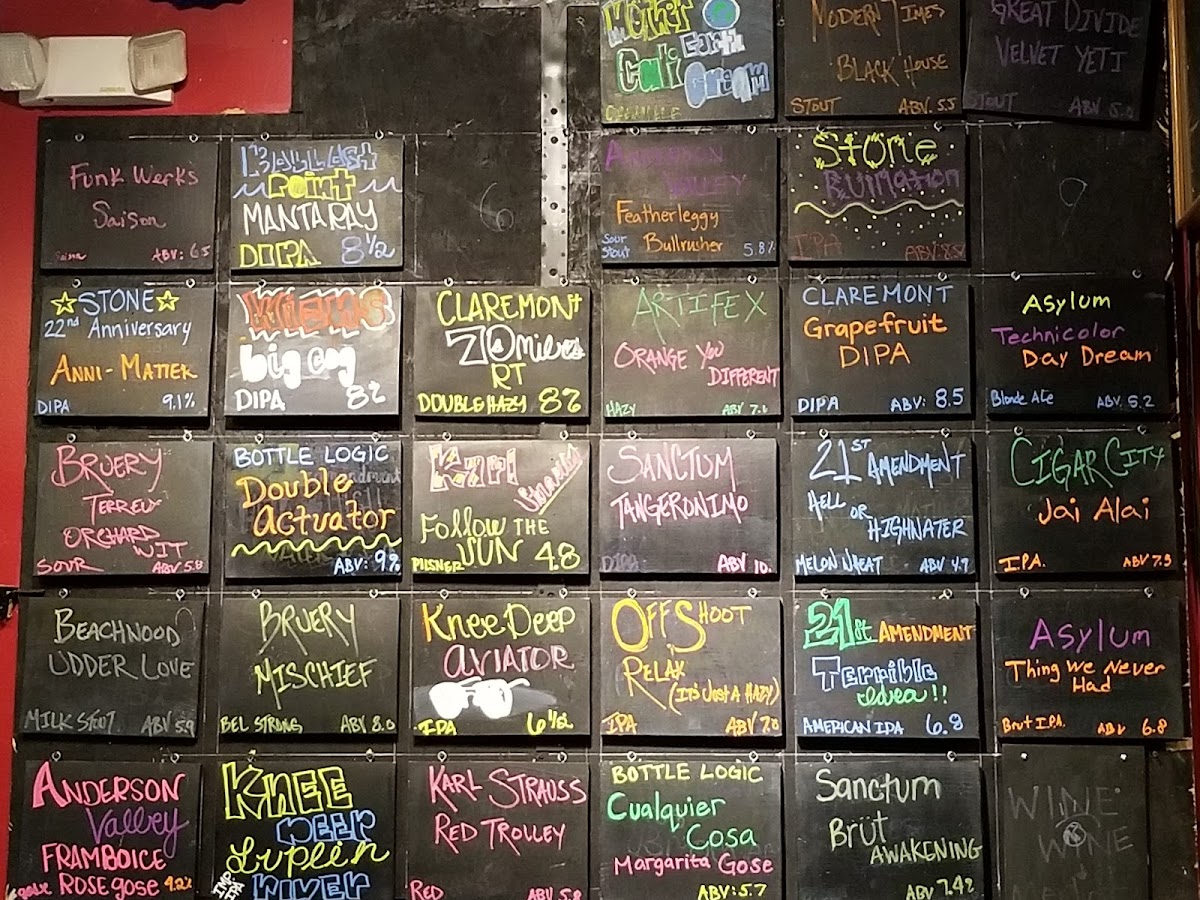 Mother
Earth
Cali
Cream
MODERN TIMES
BLACK HOUSE
STOUT ABV. 5.5
GREAT DIVIDE
VELVET YETI
STOUT ABV. 5.0
Funk Werks
Saison
Saison ABV: 6.5
Ballast
Point
MANTARAY
DIPA 8 1/2
6
ANDERSON
VALLEY
Featherleggy
Bullrusher
Sour
Stout 5.8%
Stone
RUINATION
IPA ABV: 8.5
☆STONE☆
22nd Anniversary
ANNI-MATTER
DIPA 9.1%
big cog
DIPA 8%
CLAREMONT
RT
DOUBLE HAZY 8%
ARTIFEX
ORANGE YOU
DIFFERENT
HAZY ABV
CLAREMONT
Grapefruit
DIPA
DIPA ABV: 8.5
Asylum
Technicolor
Day Dream
Blonde Ale ABV. 5.2
BRUERY
TERREUX
ORCHARD
WIT
SOUR ABV 5.8
BOTTLE LOGIC
Double
actuator
ABV: 9%
Karl
Strauss
Follow THE
SUN
PILSNER 4.8
SANCTUM
TANGERONIMO
DIPA ABV 10.
21ST
AMENDMENT
HELL OR
HIGHWATER
MELON WHEAT ABV 4.9
CIGAR CITY
Jai Alai
IPA. ABV 7.5
BEACHWOOD
UDDER LOVE
MILK STOUT ABV 5.9
BRUERY
MISCHIEF
BEL STRONG ABV 8.0
KNEE DEEP
AVIATOR
IPA 6 1/2
OFFSHOOT
RELAX
(IT'S JUST A HAZY)
IPA ABV 7.0
21st AMENDMENT
Terrible
Idea!!
AMERICAN IPA 6.8
Asylum
Thing We Never
Had
Brut IPA. ABV 6.8
ANDERSON
Valley
FRAMBOICE
ROSE gose 4.2%
gose
KNEE
DEEP
Lupulin
river
IMP
IPA
KARL STRAUSS
RED TROLLEY
RED ABV 5.8
BOTTLE LOGIC
Cualquier
Cosa
Margarita Gose
ABV: 5.7
Sanctum
Brüt
AWAKENING
ABV 7.42
WINE
WINE